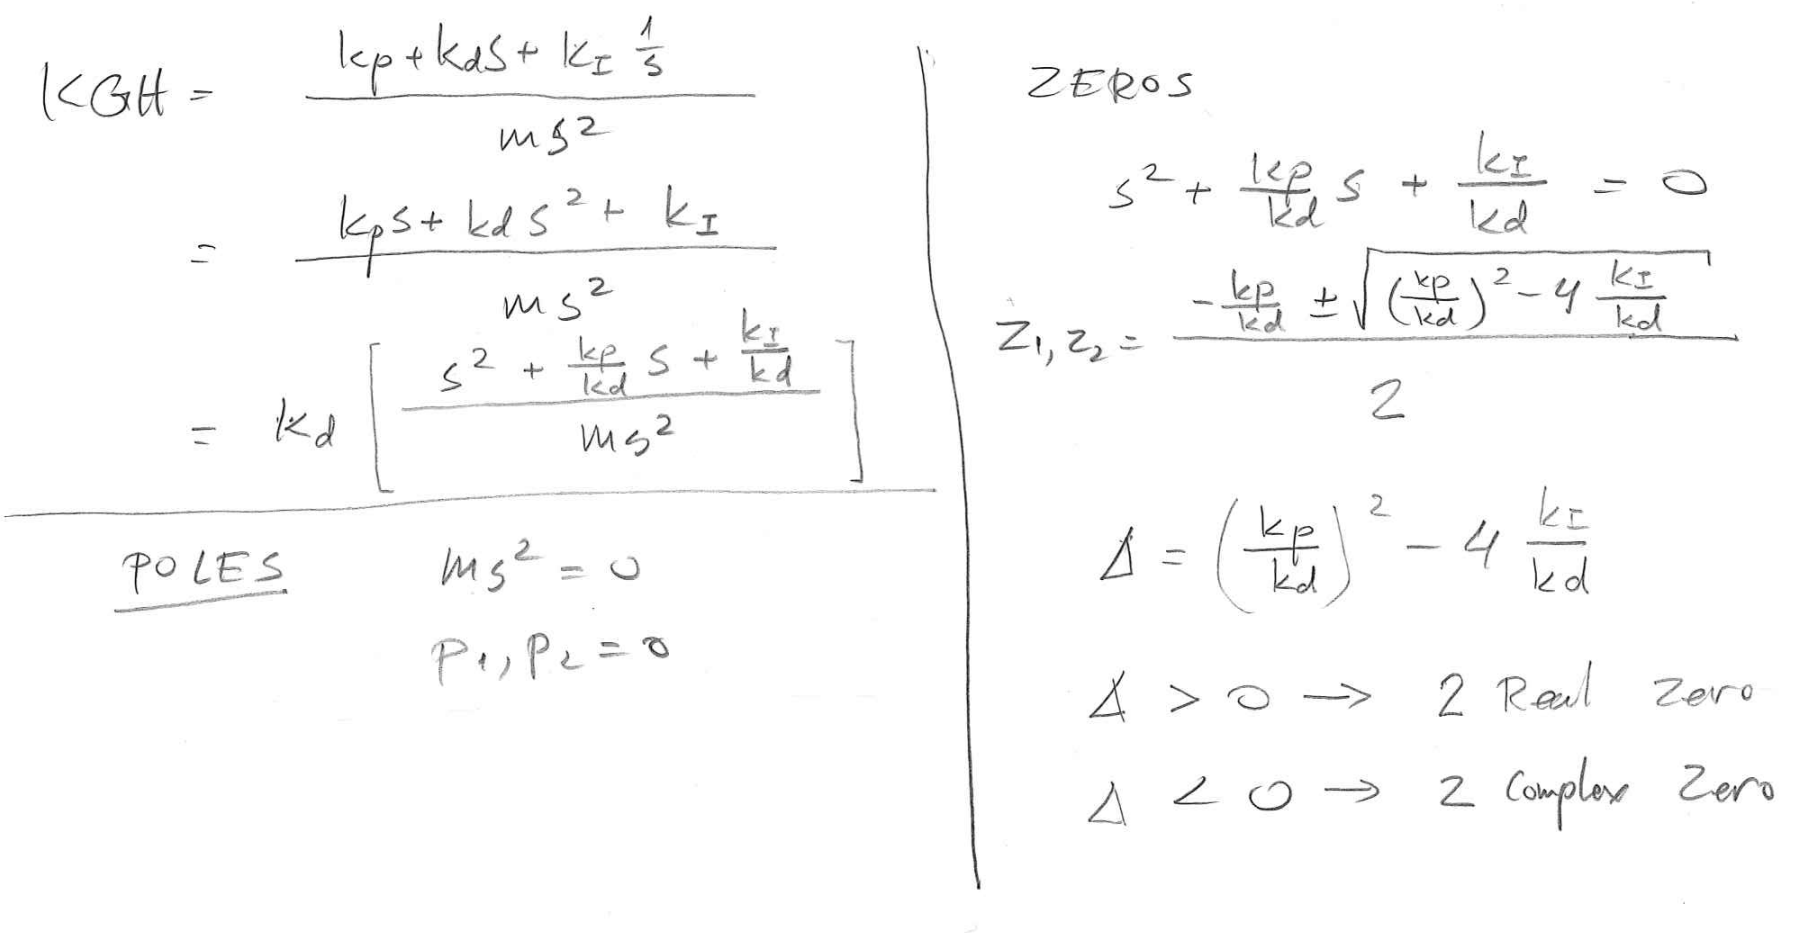 KGH = (kp + kds + kI 1/s) / (ms²)
= (kps + kds² + kI) / (ms²)
= kd [ (s² + kp/kd s + kI/kd) / (ms²) ]
POLES ms² = 0
P1, P2 = 0
ZEROS
s² + kp/kd s + kI/kd = 0
Z1, Z2 = (-kp/kd ± √((kp/kd)² - 4 kI/kd)) / 2
Δ = (kp/kd)² - 4 kI/kd
Δ > 0 → 2 Real Zero
Δ < 0 → 2 Complex Zero